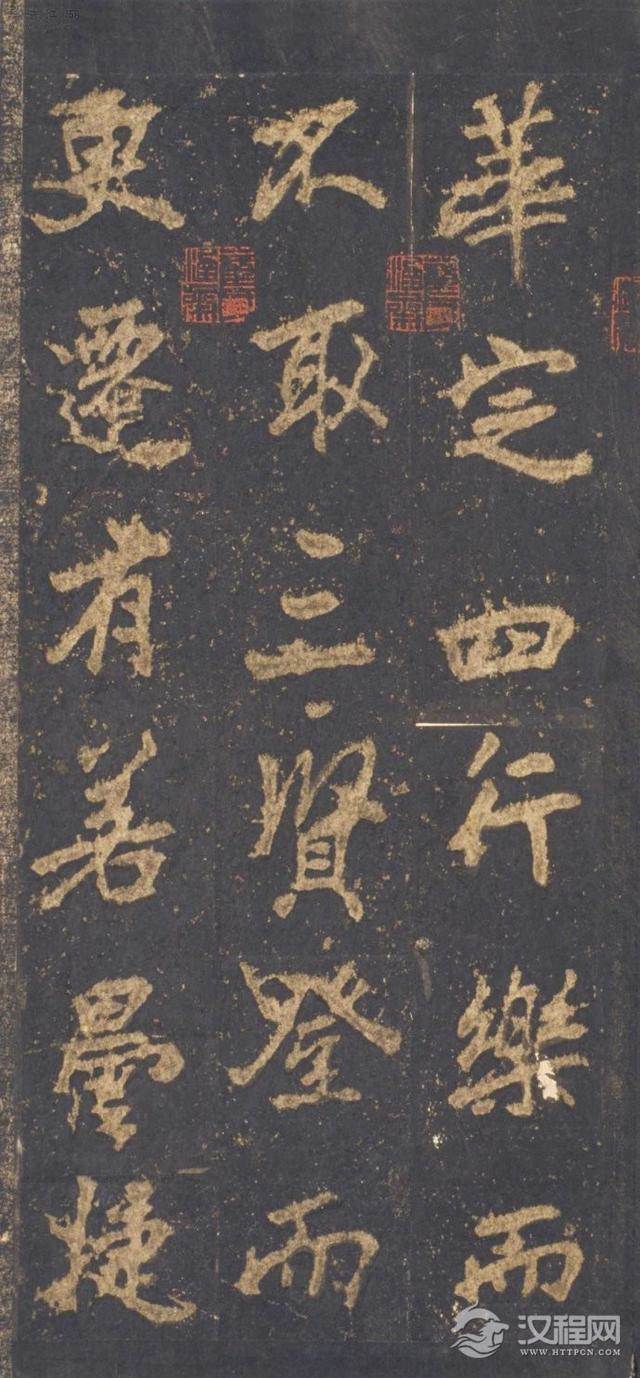 華定四行樂而
不取三賢登而
更遷有若曇捷
汉程网
WWW.HTTPCN.COM